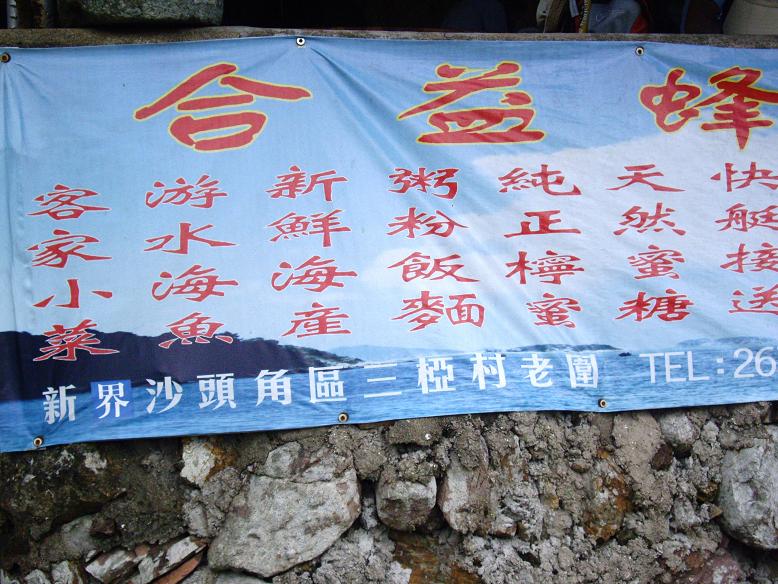 合益蜂
客家小菜
游水海魚
新鮮海産
粥粉飯麵
純正檸蜜
天然蜜糖
快艇接送
新界沙頭角區三椏村老圍 TEL:26